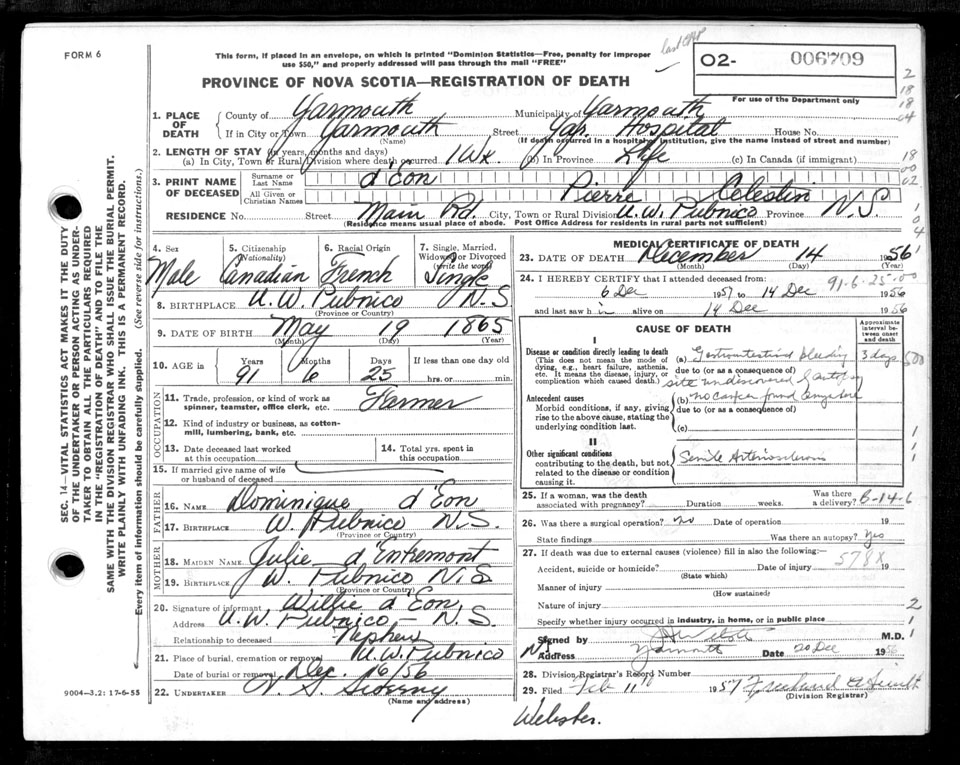 FORM 6
This form, if placed in an envelope, on which is printed "Dominion Statistics—Free, penalty for improper
use $50," and properly addressed will pass through the mail "FREE"
02- 006709
PROVINCE OF NOVA SCOTIA—REGISTRATION OF DEATH
For use of the Department only
1. PLACE OF DEATH
County of Yarmouth Municipality of Yarmouth
If in City or Town Yarmouth Street Yar. Hospital House No.
(Name) (If death occurred in a hospital or institution, give the name instead of street and number)
2. LENGTH OF STAY (in years, months and days)
(a) In City, Town or Rural Division where death occurred 1 Wk. (b) In Province Life (c) In Canada (if immigrant)
3. PRINT NAME OF DECEASED
Surname or Last Name d'Eon
All Given or Christian Names Pierre Celestin
RESIDENCE No. Street Main Rd. City, Town or Rural Division U. W. Pubnico Province N.S.
(Residence means usual place of abode. Post Office Address for residents in rural parts not sufficient)
4. Sex Male
5. Citizenship (Nationality) Canadian
6. Racial Origin French
7. Single, Married, Widowed or Divorced (write the word) Single
8. BIRTHPLACE U. W. Pubnico N.S
(Province or Country)
9. DATE OF BIRTH May 19 1865
(Month) (Day) (Year)
10. AGE in Years Months Days If less than one day old
91 6 25 hrs. or min.
OCCUPATION
11. Trade, profession, or kind of work as
spinner, teamster, office clerk, etc. Farmer
12. Kind of industry or business, as cotton-
mill, lumbering, bank, etc.
13. Date deceased last worked
at this occupation
14. Total yrs. spent in
this occupation
15. If married give name of wife
or husband of deceased
FATHER
16. NAME Dominique d'Eon
17. BIRTHPLACE W. Pubnico N.S.
(Province or Country)
MOTHER
18. MAIDEN NAME Julie d'Entremont
19. BIRTHPLACE W. Pubnico N.S
(Province or Country)
20. Signature of informant Willie d'Eon
Address U. W. Pubnico - N.S.
Relationship to deceased Nephew
21. Place of burial, cremation or removal U.W. Pubnico
Date of burial or removal Dec. 16/56
22. UNDERTAKER
(Name and address)
MEDICAL CERTIFICATE OF DEATH
23. DATE OF DEATH December 14 1956
(Month) (Day) (Year)
91-6-25-00
24. I HEREBY CERTIFY that I attended deceased from:
6 Dec 19 to 14 Dec 1956
and last saw h in alive on 14 Dec 1956
CAUSE OF DEATH
Approximate interval between onset and death
I
Disease or condition directly leading to death
(This does not mean the mode of
dying, e.g., heart failure, asthenia,
etc. It means the disease, injury, or
complication which caused death.)
(a) Gastrointestinal bleeding 3 days
due to (or as a consequence of)
site undiscovered & autopsy
Antecedent causes
Morbid conditions, if any, giving
rise to the above cause, stating the
underlying condition last.
(b) no cancer found
due to (or as a consequence of)
(c)
II
Other significant conditions
contributing to the death, but not
related to the disease or condition
causing it.
Senile Arteriosclerosis
25. If a woman, was the death
associated with pregnancy? Duration weeks. Was there a delivery?
6-14-6
26. Was there a surgical operation? no Date of operation 19
State findings Was there an autopsy? Yes
27. If death was due to external causes (violence) fill in also the following:—
578X
Accident, suicide or homicide? Date of injury 19
(State which)
Manner of injury
(How sustained)
Nature of injury
Specify whether injury occurred in industry, in home, or in public place
Signed by M.D.
Address Yarmouth Date 20 Dec 1956
28. Division Registrar's Record Number
29. Filed Feb 11 1957
(Division Registrar)
Webster.
SEC. 14—VITAL STATISTICS ACT MAKES IT THE DUTY
OF THE UNDERTAKER OR PERSON ACTING AS UNDER-
TAKER TO OBTAIN ALL THE PARTICULARS REQUIRED
IN THE "REGISTRATION OF DEATH" AND TO FILE THE
SAME WITH THE DIVISION REGISTRAR WHO SHALL ISSUE THE BURIAL PERMIT.
WRITE PLAINLY WITH UNFADING INK. THIS IS A PERMANENT RECORD.
Every item of information should be carefully supplied. (See reverse side for instructions.)
9004-3.2: 17-6-55